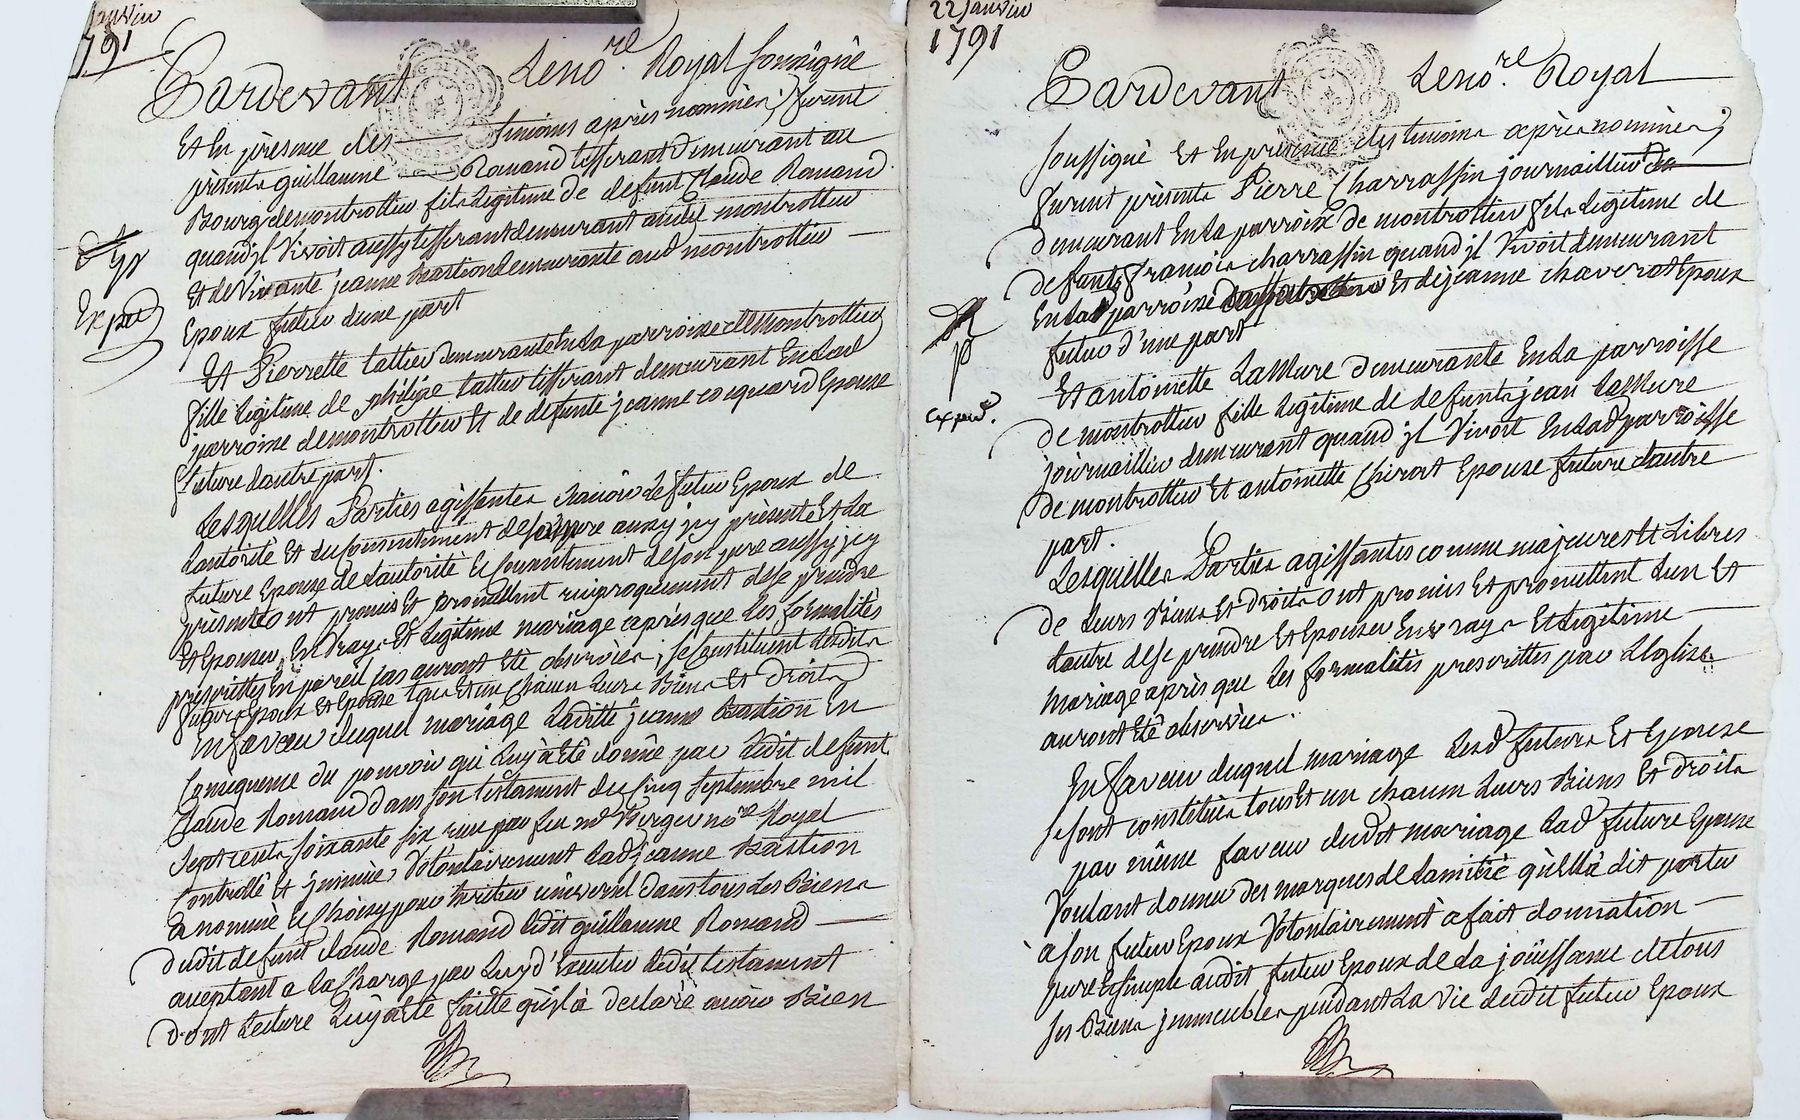 janvier
1791
Pardevant Le no.re Royal soussigné
Et En présence des témoins après nommés, furent
présents guillaume Romand tisserant demeurant au
Bourg de montrottier fils légitime de defunt Claude Romand
quand jl vivoit aussy tisserant demeurant audit montrottier
Et de vivante jeanne Bastion demeurante aud montrottier
Epoux futur d'une part
Exped
Et Pierrette tattier demeurante En La parroisse de Montrottier
fille légitime de philipe tattier tisserant demeurant En Lad
parroisse de montrottier Et de defunte jeanne coquard Epouse
future dautre part.
Lesquelles Parties agissantes sçavoir Le futur Epoux de
Lautorité Et du consentiment de sa mere aussy jcy présente Et La
future Epouse de Lautorité Et consentiment de son pere aussy jcy
présent ont promis Et promettent réciproquement de se prendre
Et Epouser En vray Et légitime mariage après que Les formalités
prescrittes En pareil cas auront été observées, se constituent Lesdits
futurs Epoux Et Epouse tous Et un chacun Leurs Biens Et Droits
En faveur duquel mariage Laditte jeanne Bastion En
Conséquence du pouvoir qui Luy à été donné par Ledit defunt
Claude Romand dans son testament du cinq septembre mil
sept cents soixante six reçu par feu me Verger nore Royal
Controllé Et jnsinué, Volontairement Lad jeanne Bastion
a nommé Et choisy pour héritier universel dans tous Les Biens
dudit defunt claude Romand Ledit guillaume Romand
acceptant a La charge par Luy d'Executer Ledit testament
dont Lecture Luy à été faitte qu'jl à declaré avoir Bien
22 janvier
1791
Pardevant Le no.re Royal
soussigné Et En présence des témoins après nommés,
furent présents Pierre Charrassin journaillier
demeurant En La parroisse de montrottier fils légitime de
defunt françois charrassin quand jl vivoit demeurant
En Lad parroisse Et de jeanne chaverot Epoux
futur d'une part
exped.
Et antoinette LaMure demeurante En La parroisse
de montrottier fille légitime de defunt jean LaMure
journaillier demeurant quand jl Vivoit En Lad parroisse
de montrottier Et antoinette Chirat Epouse future dautre
part.
Lesquelles Parties agissantes comme majeures Et Libres
de Leurs Biens Et Droits ont promis Et promettent Lun Et
Lautre de se prendre Et Epouser En vray Et Légitime
mariage après que Les formalités prescrittes par LEglise
auront été observées.
En faveur duquel mariage Lesd futurs Et Epouse
se sont constitués tous Et un chacun Leurs Biens Et Droits
par même faveur dudit mariage Lad future Epouse
Voulant donner des marques de Lamitié qu'Elle dit porter
à son futur Epoux Volontairement à fait donnation
pure Et simple audit futur Epoux de La joüissance de tous
ses Biens jmmeubles pendant La vie dudit futur Epoux